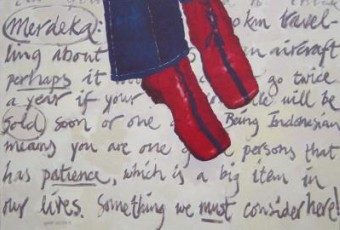 Merdeka: travel-
ling about an aircraft
perhaps it go twice
a year if your will be
sold soon or one Being Indonesian
means you are one persons that
has patience, which is a big item in
our lives. Something we must consider here!